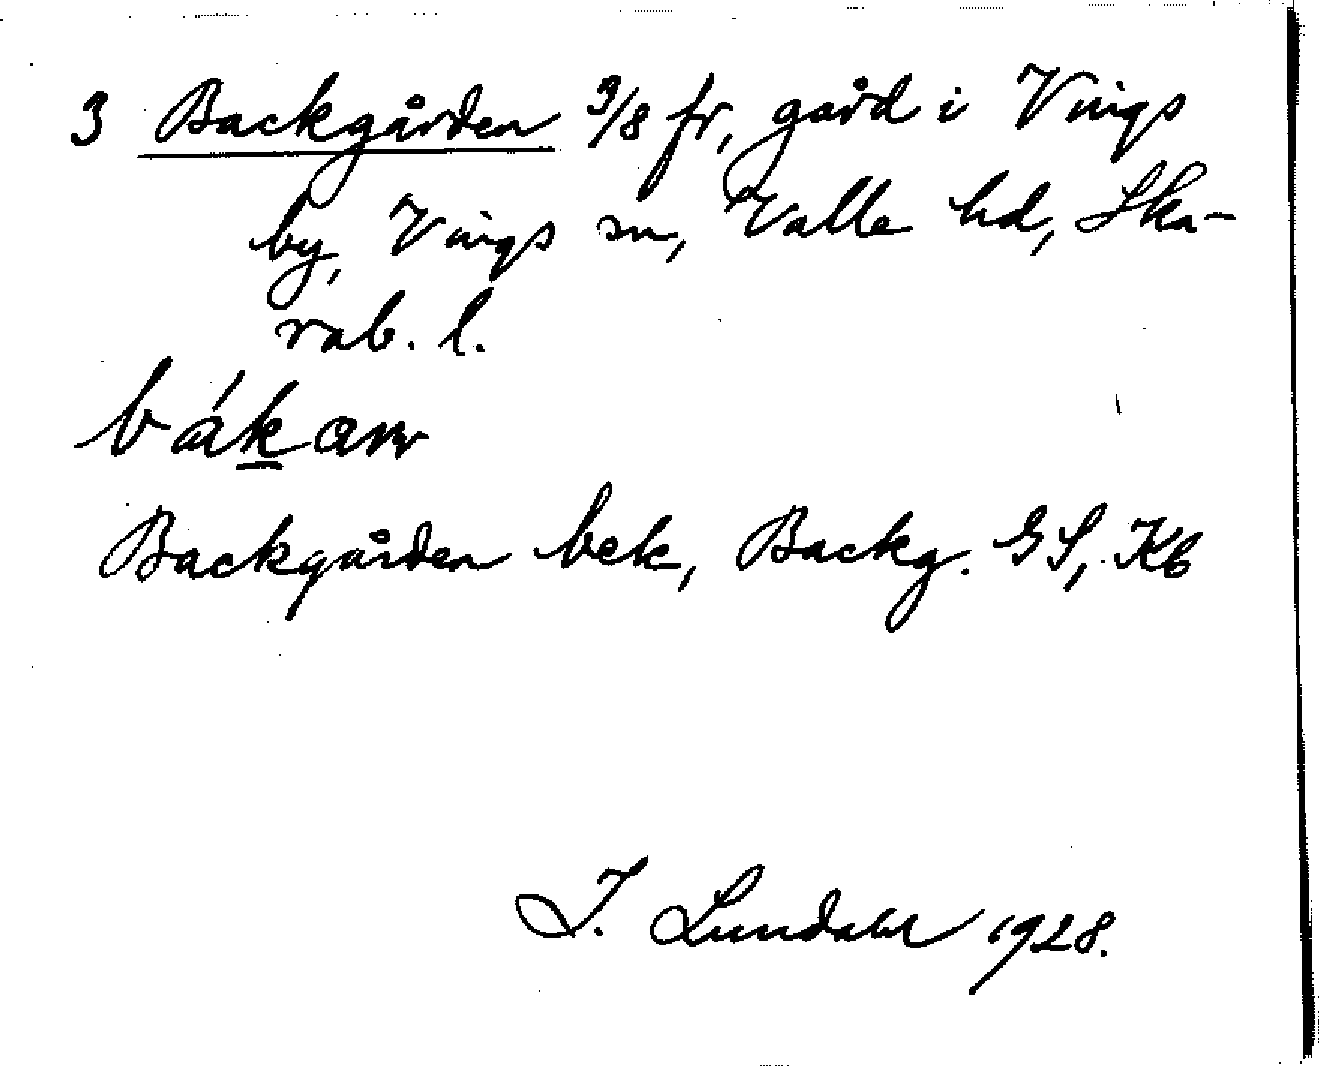 3 Backgården 3/8 fr, gård i Vings
by, Vings sn, Valle hd, Ska-
rab. l.
bákan
Backgården bek, Backg. GS, Kb
I. Lundahl 1928.